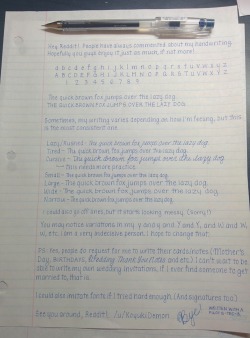 Hey Reddit! People have always commented about my handwriting.
Hopefully you guys enjoy it just as much, if not more!
a b c d e f g h i j k l m n o p q r s t u v w x y z
A B C D E F G H I J K L M N O P Q R S T U V W X Y Z
1 2 3 4 5 6 7 8 9
The quick brown fox jumps over the lazy dog.
THE QUICK BROWN FOX JUMPS OVER THE LAZY DOG.
Sometimes, my writing varies depending on how I'm feeling, but this
is the most consistent one.
Lazy/Rushed - The quick brown fox jumps over the lazy dog.
Tired - The quick brown fox jumps over the lazy dog.
Cursive - The quick brown fox jumps over the lazy dog
this needs more practice
Small - The quick brown fox jumps over the lazy dog.
Large - The quick brown fox jumps over the lazy dog.
Wide - The quick brown fox jumps over the lazy dog.
Narrow - The quick brown fox jumps over the lazy dog.
I could also go all ones, but it starts looking messy. (Sorry!)
You may notice variations in my y and y and Y and Y, and W and W,
etc. I am a very indecisive person. I hope to change that.
PS: Most people do request for me to write their cards/notes (Mother's
Day, BIRTHDAYS, Wedding Thank You Notes and etc.) I can't wait to be
able to write my own wedding invitations, if I ever find someone to get
married to, that is.
I could also imitate fonts if I tried hard enough. (And signatures too.)
See you around, Reddit! /u/
Bye!
WRITTEN WITH A
PILOT G-TEC-C